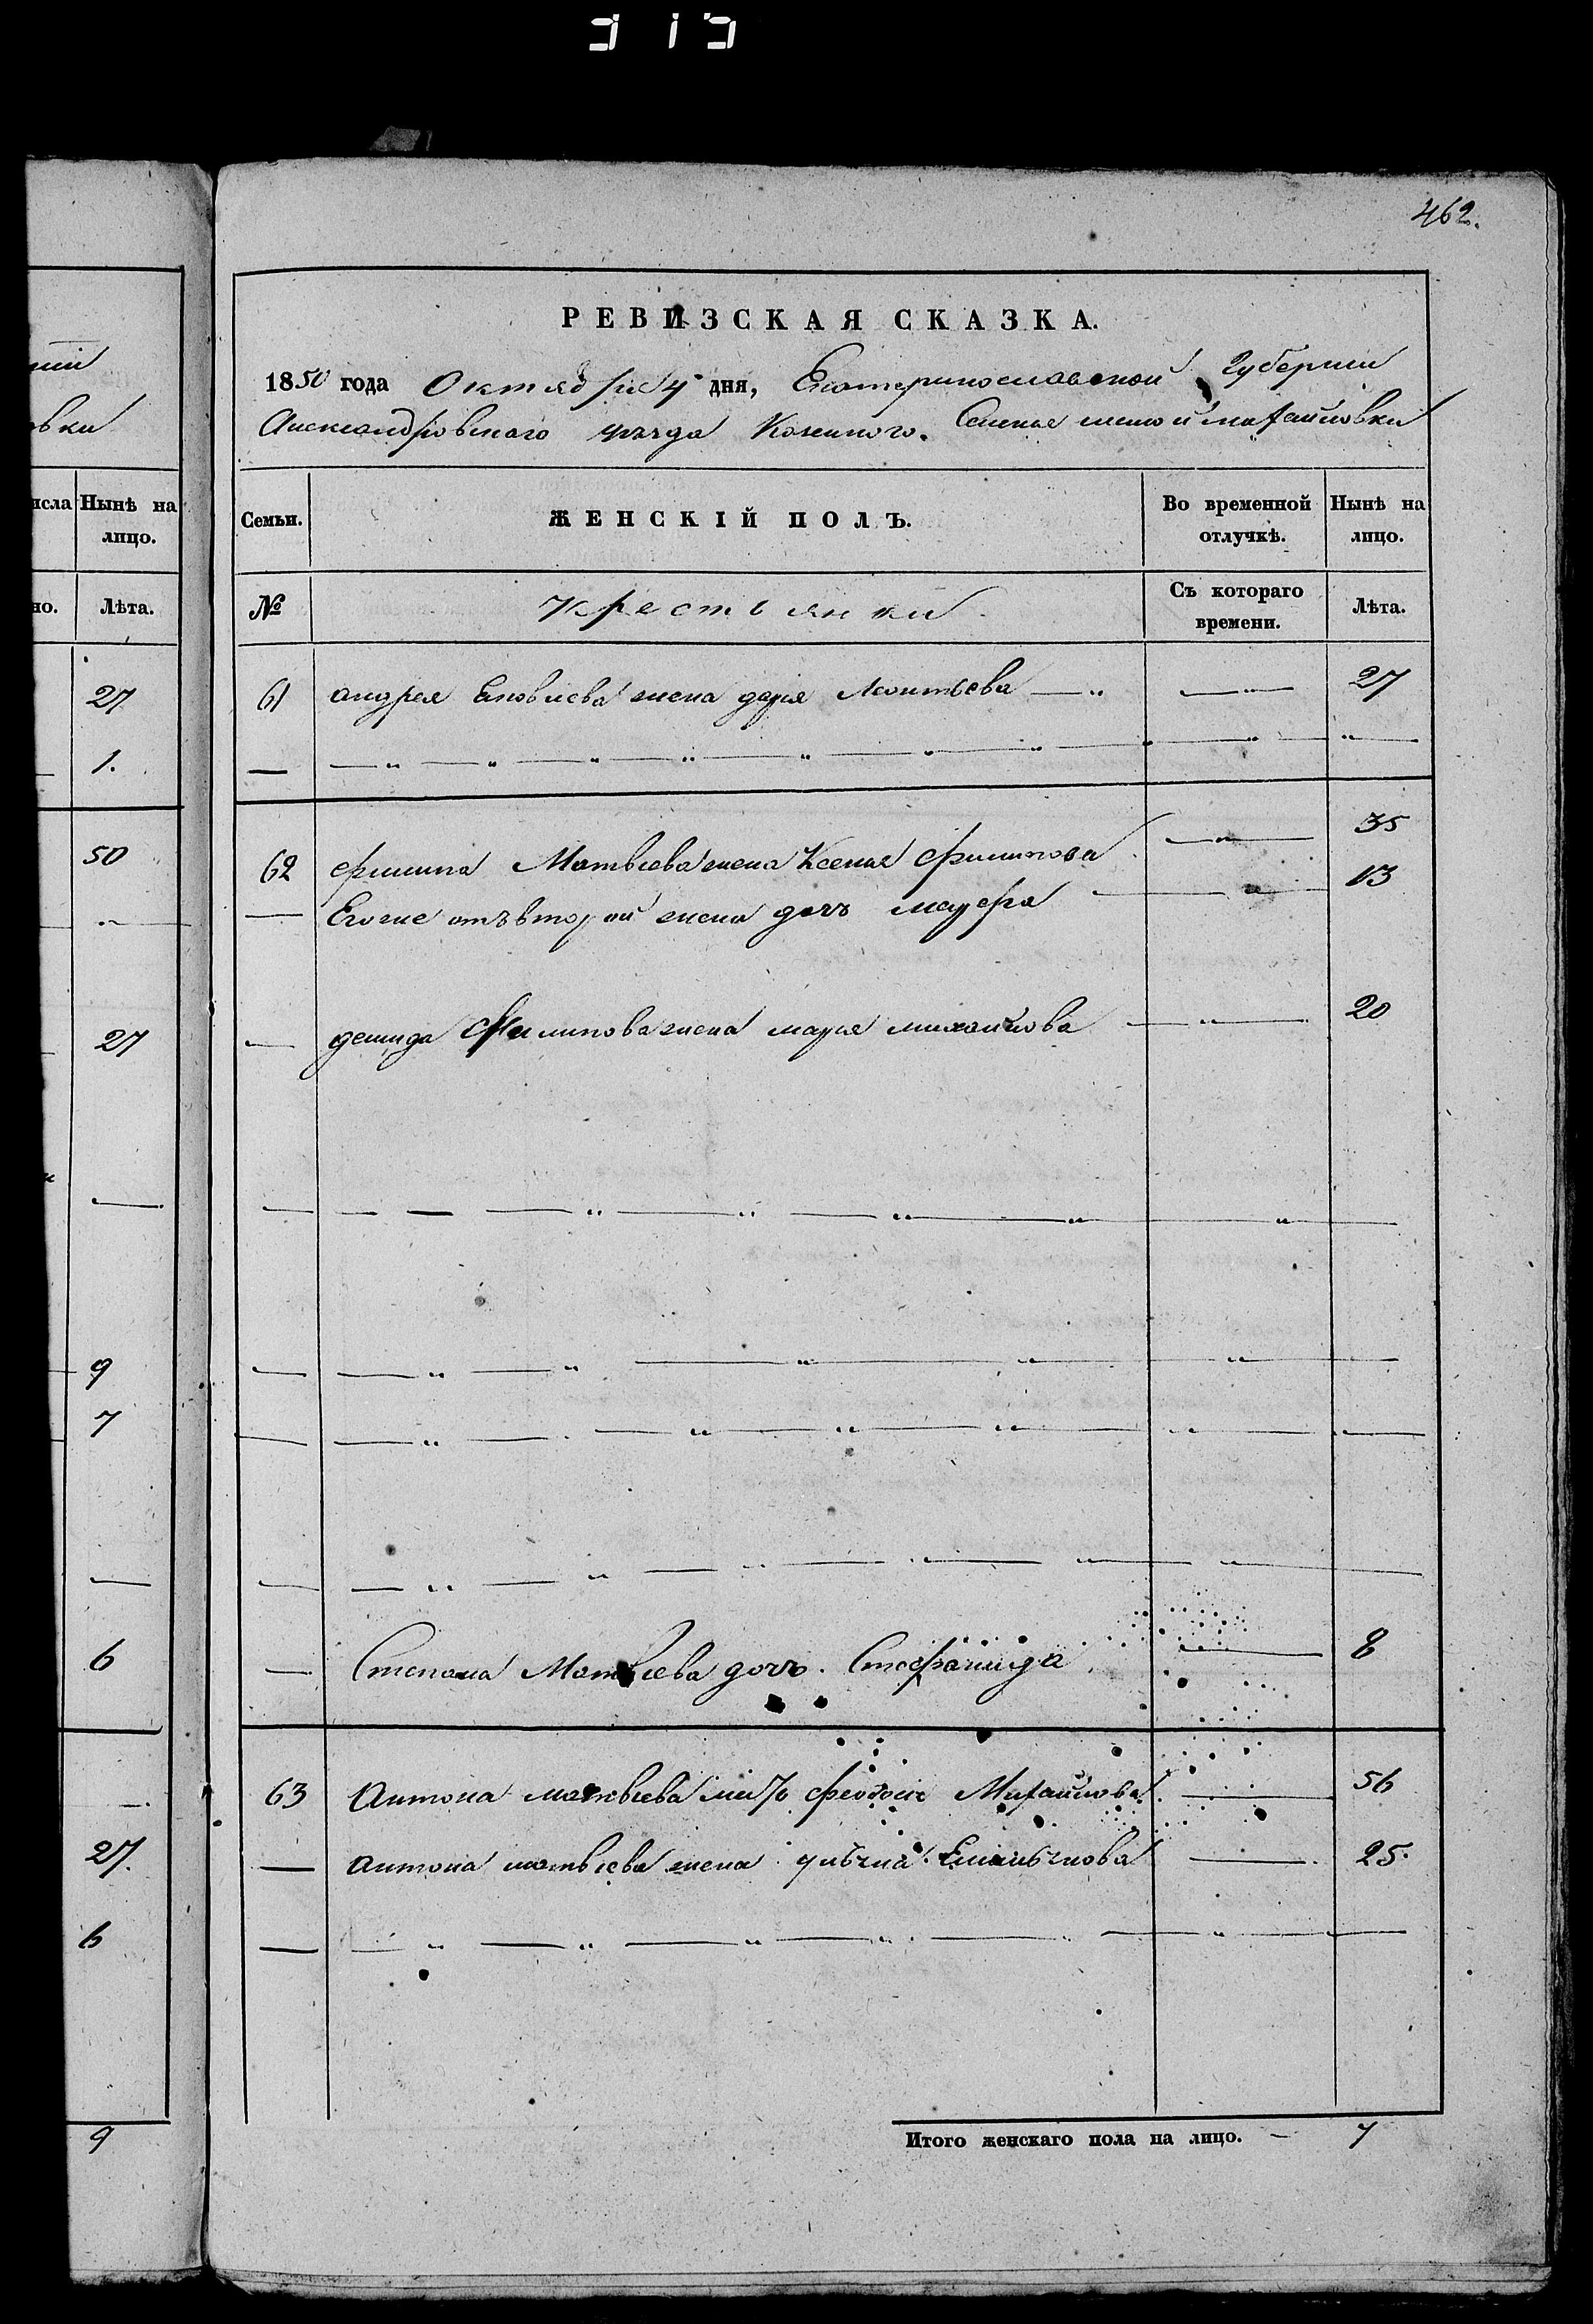 315
462.
РЕВИЗСКАЯ СКАЗКА.
1850 года Октября 4 дня, Екатеринославской Губернии
Александровского уезда Казенного Селения михайловки
Семьи. ЖЕНСКІЙ ПОЛЪ. Во временной отлучкѣ. Нынѣ на лицо.
№ Крестьянки Съ котораго времени. Лѣта.
61 андрея Яковлева жена дарія Леонтьева — 27
62 филипа Матвѣева жена Ксения филипова — 35
— Егоже отъ второй жены дочь марфа — 13
— демида Филипова жена мария михайлова — 20
— Степана Матвѣева дочь Стефанида — 8
63 Антона матвѣева мать феодосия Михайлова — 56
— антона матвѣева жена ульяна Емельянова — 25.
Итого женскаго пола на лицо. — 7
овки
исла Нынѣ на лицо.
но. Лѣта.
27
1.
50
27
9
7
6
27.
6
9